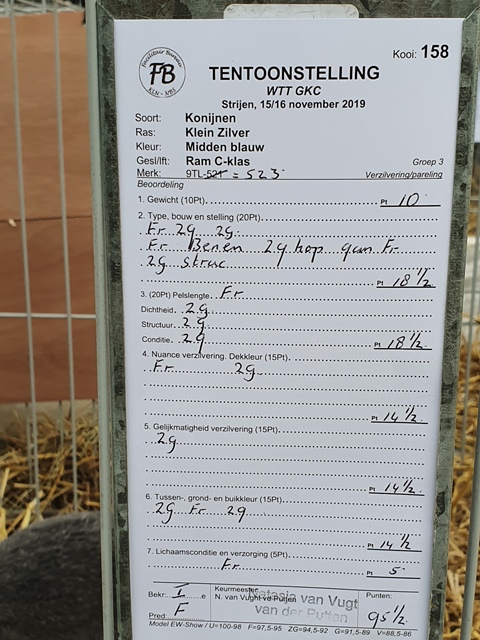 Facilitair Bureau
FB
KLN - NBS
Kooi: 158
TENTOONSTELLING
WTT GKC
Strijen, 15/16 november 2019
Soort: Konijnen
Ras: Klein Zilver
Kleur: Midden blauw
Gesl/lft: Ram C-klas Groep 3
Merk: 9TL-521 = 523 Verzilvering/pareling
Beoordeling
1. Gewicht (10Pt) Pt 10
2. Type, bouw en stelling (20Pt)
Fr. zg zg
Fr Benen zg kop Fr
zg
Pt 18 1/2
3. (20Pt) Pelslengte. Fr
Dichtheid. zg
Structuur. zg
Conditie. zg Pt 18 1/2
4. Nuance verzilvering. Dekkleur (15Pt)
Fr zg
Pt 14 1/2
5. Gelijkmatigheid verzilvering (15Pt)
zg
Pt 14 1/2
6. Tussen-, grond- en buikkleur (15Pt)
zg Fr zg
Pt 14 1/2
7. Lichaamsconditie en verzorging (5Pt)
Fr Pt 5
Bekr: I e Keurmeester: Punten:
N. van Vught-vd Putten
Natasja van Vugt
van der Putten
Pred: F 95 1/2
Model EW-Show / U=100-98 F=97,5-95 ZG=94,5-92 G=91,5-89 V=88,5-86